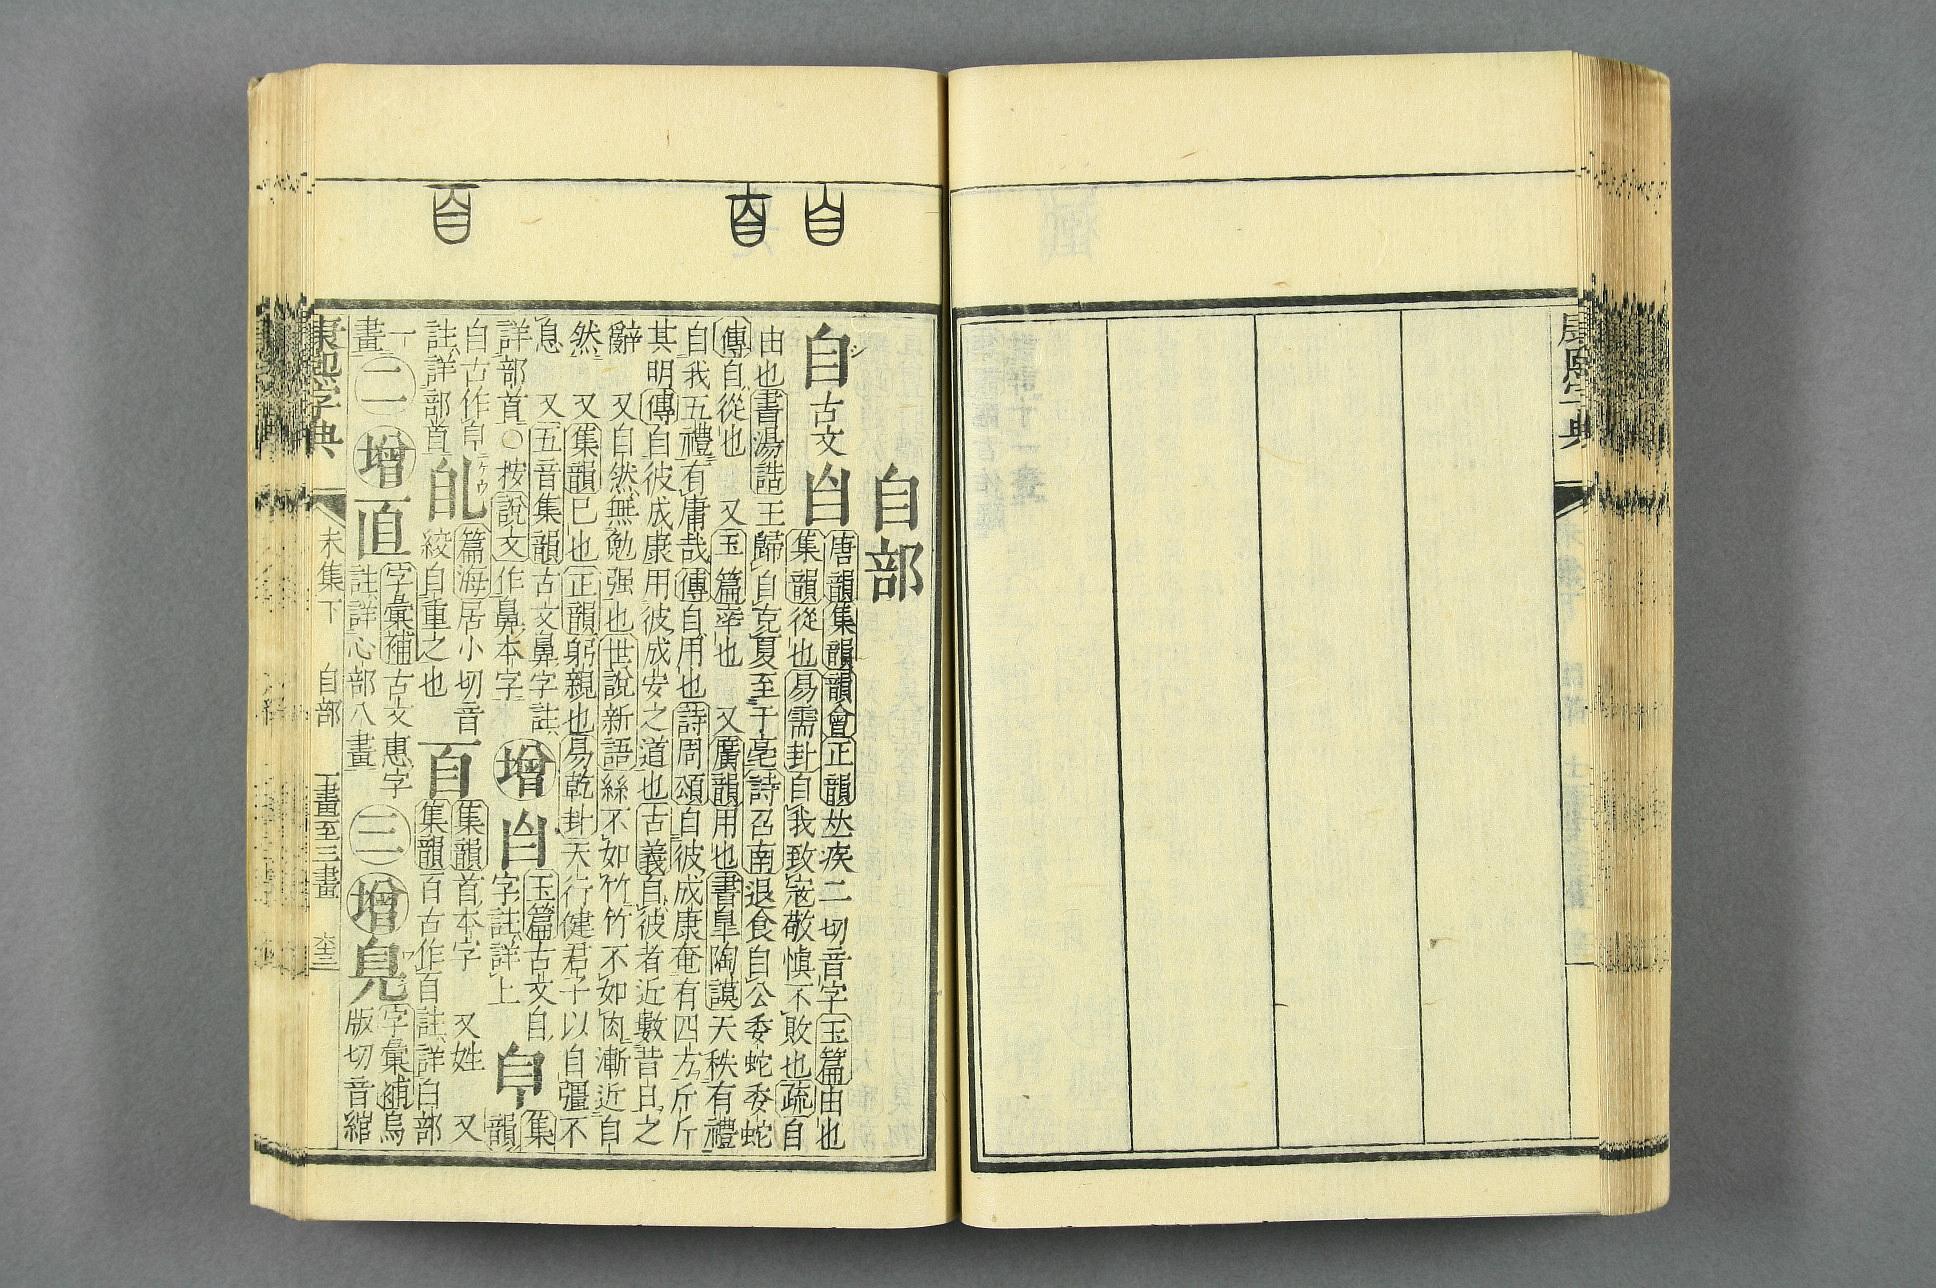 康熙字典
自部
自
古文
𦣹
唐韻集韻韻會正韻𠀤疾二切音字玉篇由也
集韻從也易需卦自我致寇敬愼不敗也疏自
由也書湯誥王歸自克夏至于亳詩召南退食自公委蛇委蛇
傳自從也 又玉篇率也 又廣韻用也書臯陶謨天秩有禮
自我五禮有庸哉傳自用也詩周頌自彼成康奄有四方斤斤
其明傳自彼成康用彼成安之道也古義自彼者近數昔日之
辭 又自然無勉强也世說新語絲不如竹竹不如肉漸近自
然 又集韻已也正韻躬親也易乾卦天行健君子以自彊不
息 又五音集韻古文鼻字註
詳部首○按說文作鼻本字
增
𦣹
玉篇古文自
字註詳上
集
韻
自古作𦣼
註詳部首
篇海居小切音
絞自重之也
𦣻
集韻首本字 又姓 又
集韻百古作𦣻註詳白部
一
畫
二
增
字彙補古文惠字
註詳心部八畫
三
增
字彙補烏
版切音綰
康熙字典 未集下 自部 一畫至三畫